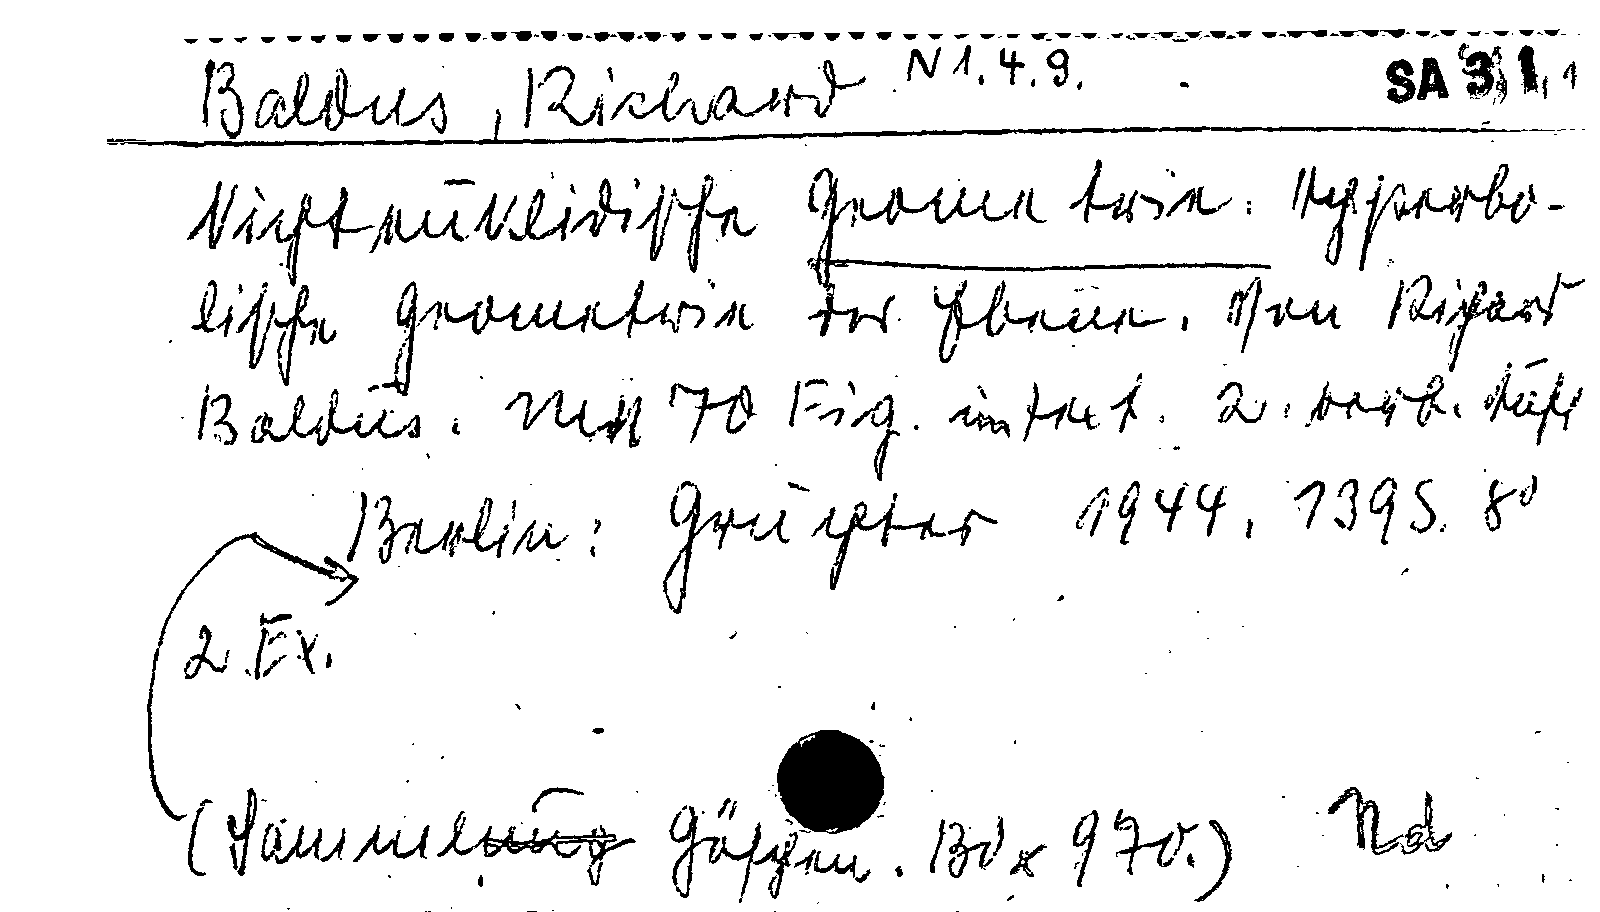 Baldus, Richard N 1.4.9. SA 3,1,1
Nichteuklidische Geometrie. Hyperbo-
lische Geometrie der Ebene. Von Richard
Baldus. Mit 70 Fig. im Text. 2. verb. Aufl
Berlin: Gruyter 1944. 139 S. 8°
2 Ex.
(Sammlung Göschen. Bd 970.) Nd